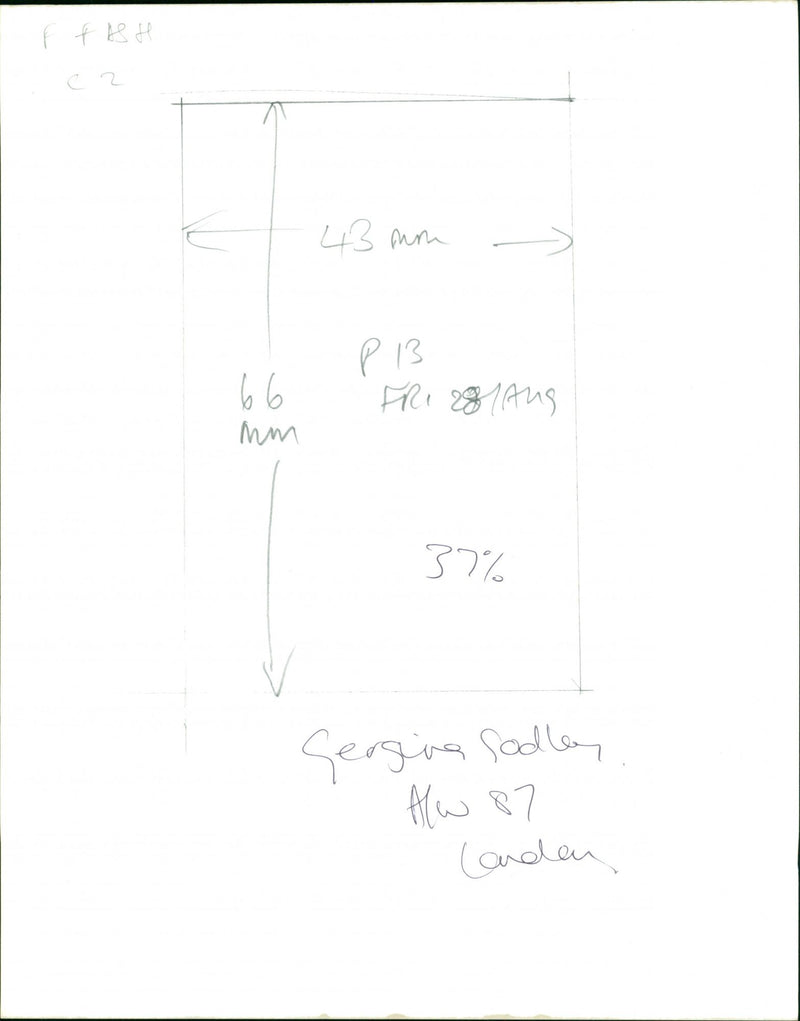 F FASH
C 2
43 mm
P 13
66
mm
FRI 28/AUG
37%
Georgina Godley
A/W 87
London